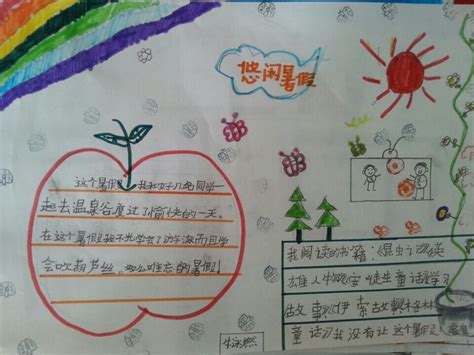 悠闲暑假
这个暑假,我和好几名同学一
起去温泉谷度过了愉快的一天。
在这个暑假我不光学会了游泳而且学
会吹葫芦丝。难忘的暑假!
我阅读的书籍:《昆虫记》英
雄人物
徒生童话》学习
故事》伊索故事格林
童话》我没有让这个暑假